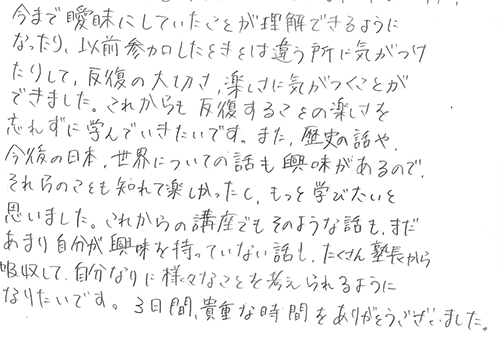 今まで曖昧にしていたことが理解できるように
なったり、以前参加したときとは違う所に気がつけ
たりして、反復の大切さ、楽しさに気がつくことが
できました。これからも反復することの楽しさを
忘れずに学んでいきたいです。また、歴史の話や、
今後の日本、世界についての話も興味があるので、
それらのことも知れて楽しかったし、もっと学びたいと
思いました。これからの講座でもそのような話も、まだ
あまり自分が興味を持っていない話も、たくさん塾長から
吸収して、自分なりに様々なことを考えられるように
なりたいです。3日間、貴重な時間をありがとうございました。